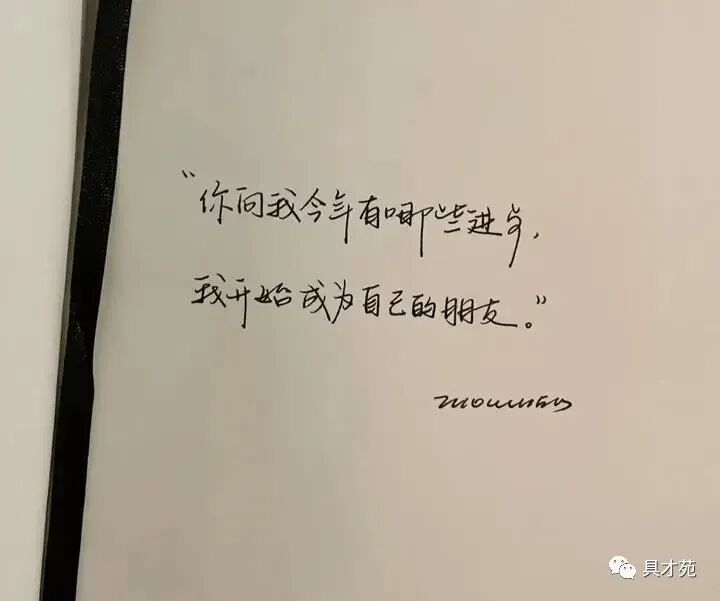 “你问我今年有哪些进步，
我开始成为自己的朋友。”
具才苑